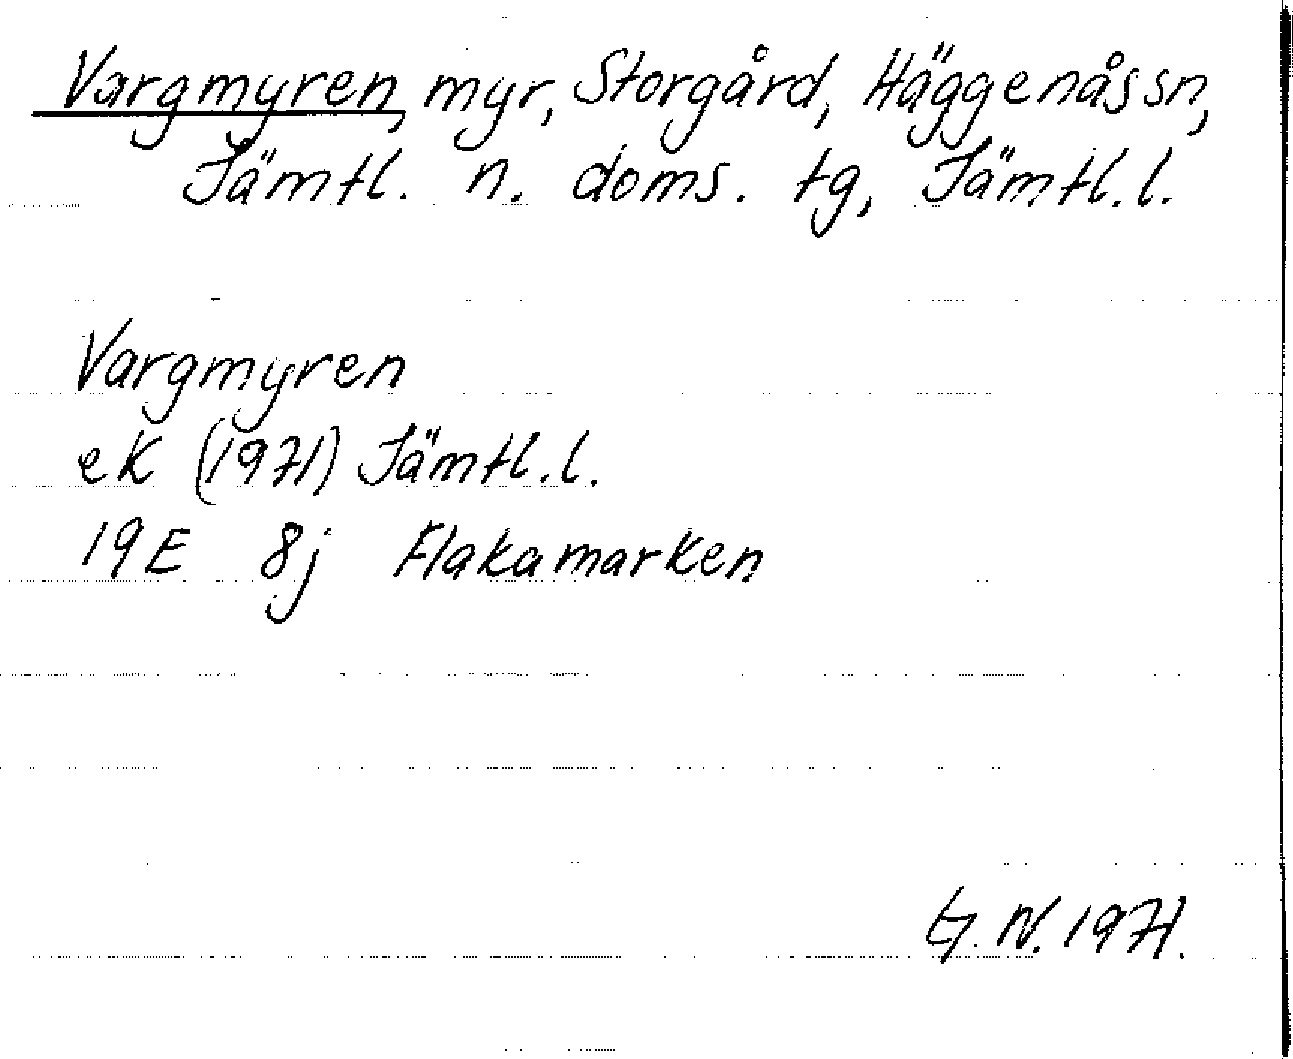 Vargmyren, myr, Storgård, Häggenås sn,
Jämtl. n. doms. tg, Jämtl. l.
Vargmyren
eK (1971) Jämtl. l.
19E 8j Flakamarken
G. N. 1971.